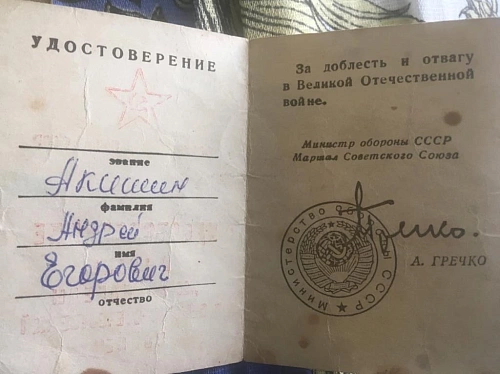 УДОСТОВЕРЕНИЕ
звание
Акишин
фамилия
Андрей
имя
Егорович
отчество
За доблесть и отвагу
в Великой Отечественной
войне.
Министр обороны СССР
Маршал Советского Союза
А. ГРЕЧКО
Министерство обороны СССР